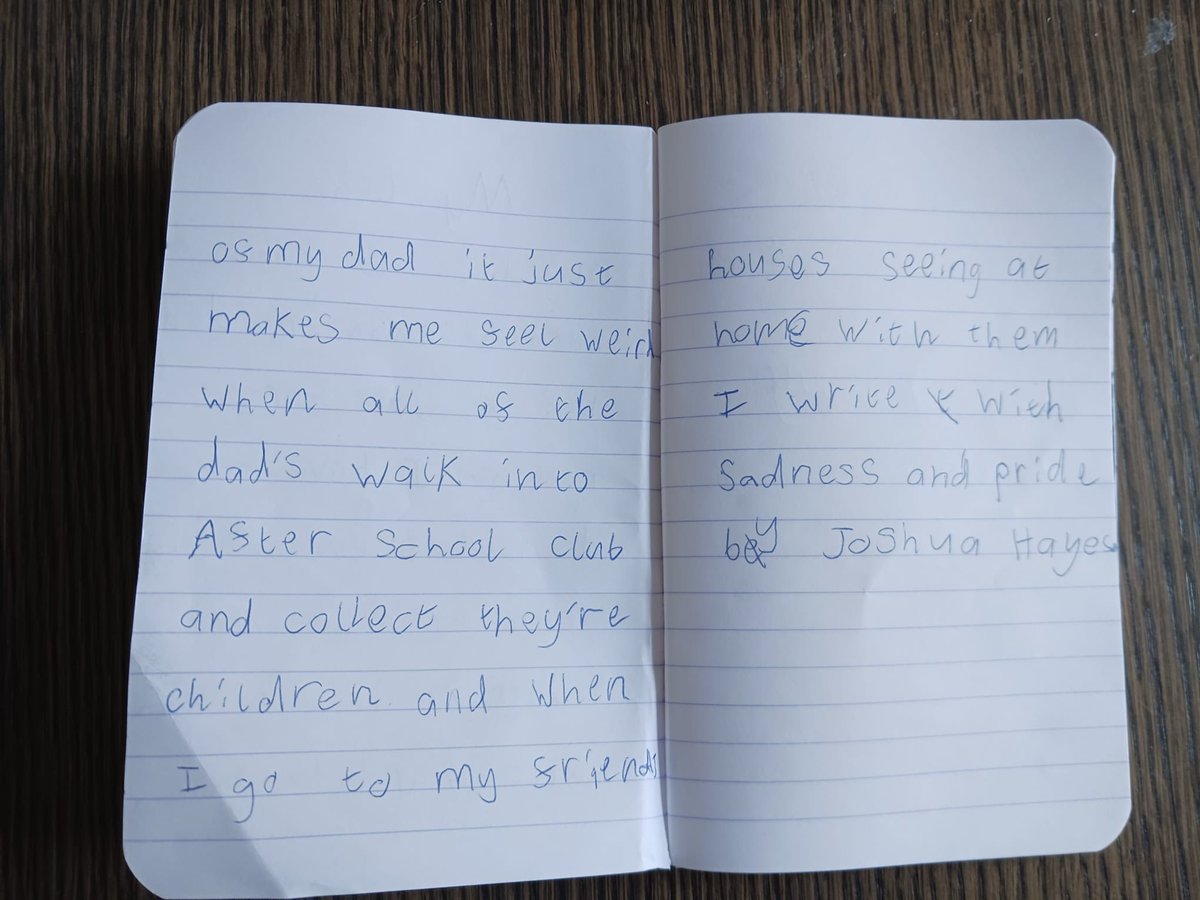 of my dad it just
makes me feel weird
when all of the
dad's walk into
After School club
and collect they're
children and when
I go to my friends
houses seeing at
home with them
I write with
sadness and pride
by Joshua Hayes